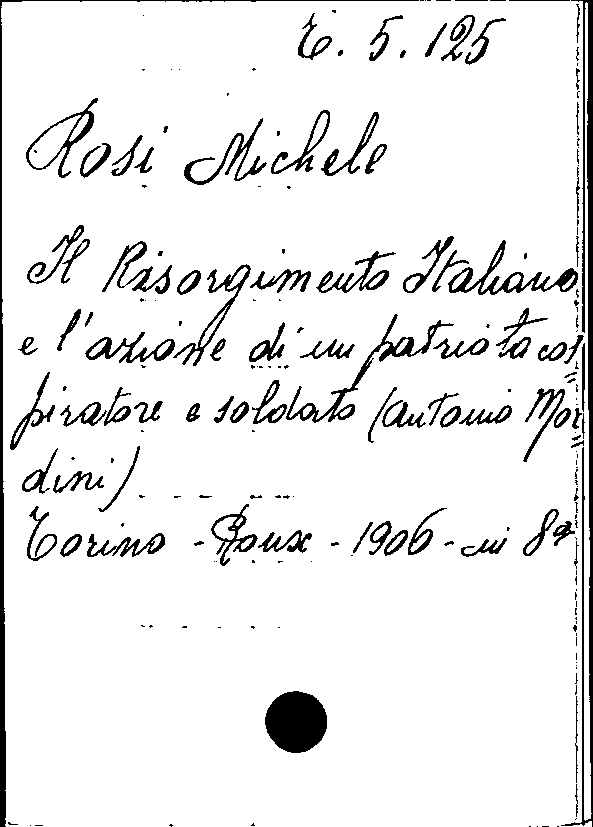 T. 5. 125
Rosi Michele
Il Risorgimento Italiano
e l'azione di un patriota cos=
piratore e soldato (Antonio Mor=
dini)
Torino - Roux - 1906 - in 8º